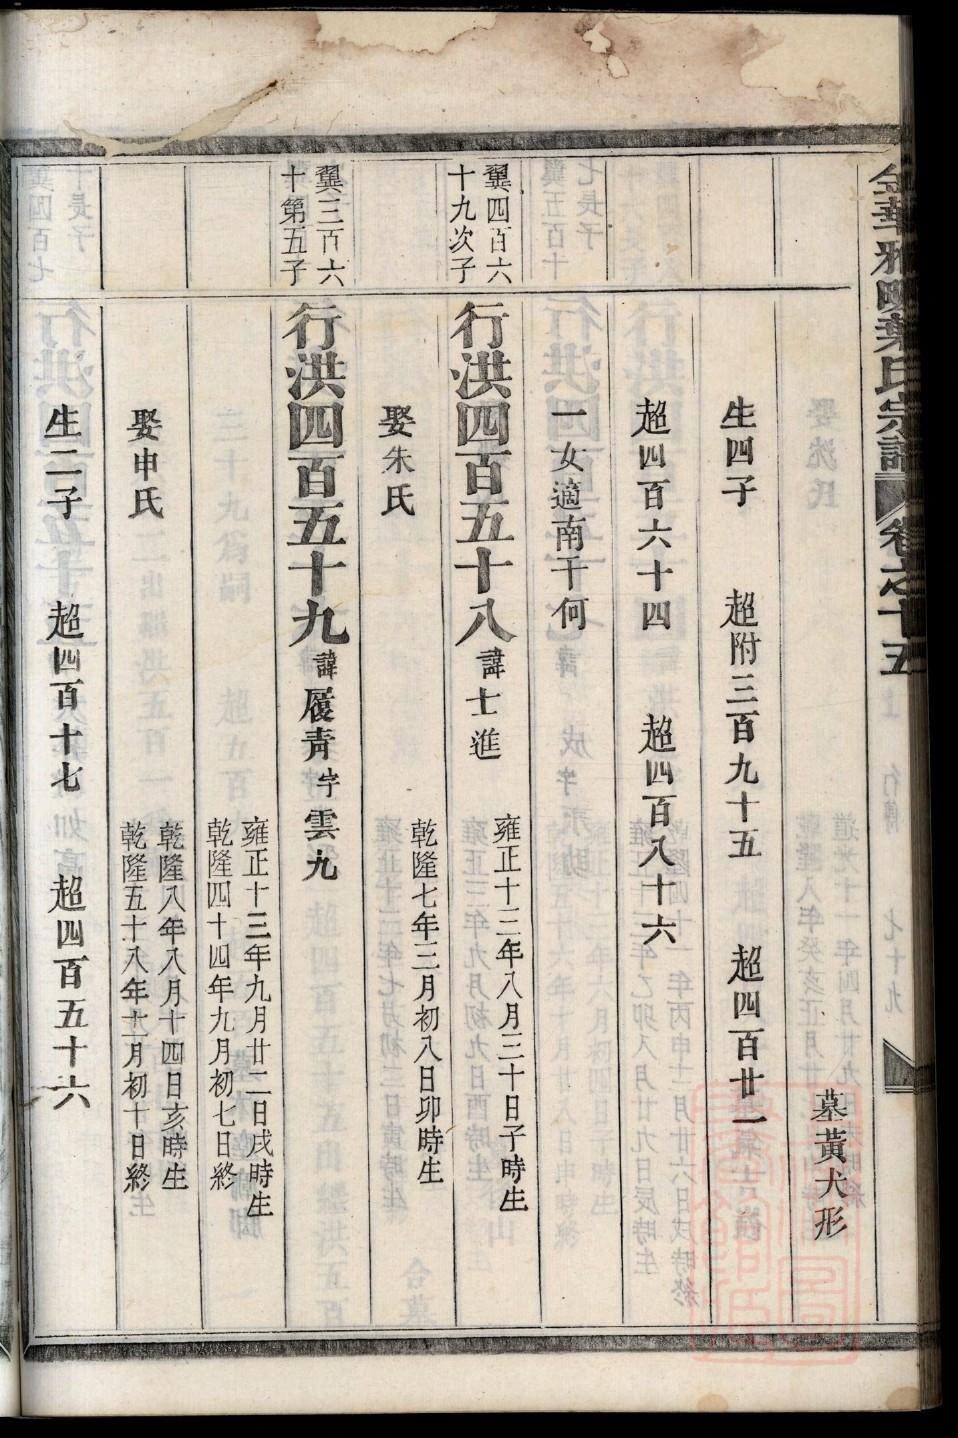 金華雅畈葉氏宗譜 卷之十五
墓黃犬形
生四子 超附三百九十五 超四百廿一
超四百六十四 超四百八十六
一女適南干何
翼四百六
十九次子
行洪四百五十八 諱士進
雍正十三年八月三十日子時生
娶朱氏
乾隆七年三月初八日卯時生
翼三百六
十第五子
行洪四百五十九 諱履青字雲九
雍正十三年九月廿二日戌時生
乾隆四十四年九月初七日終
娶申氏
乾隆八年八月十四日亥時生
乾隆五十八年十一月初十日終
生二子 超四百十七 超四百五十六